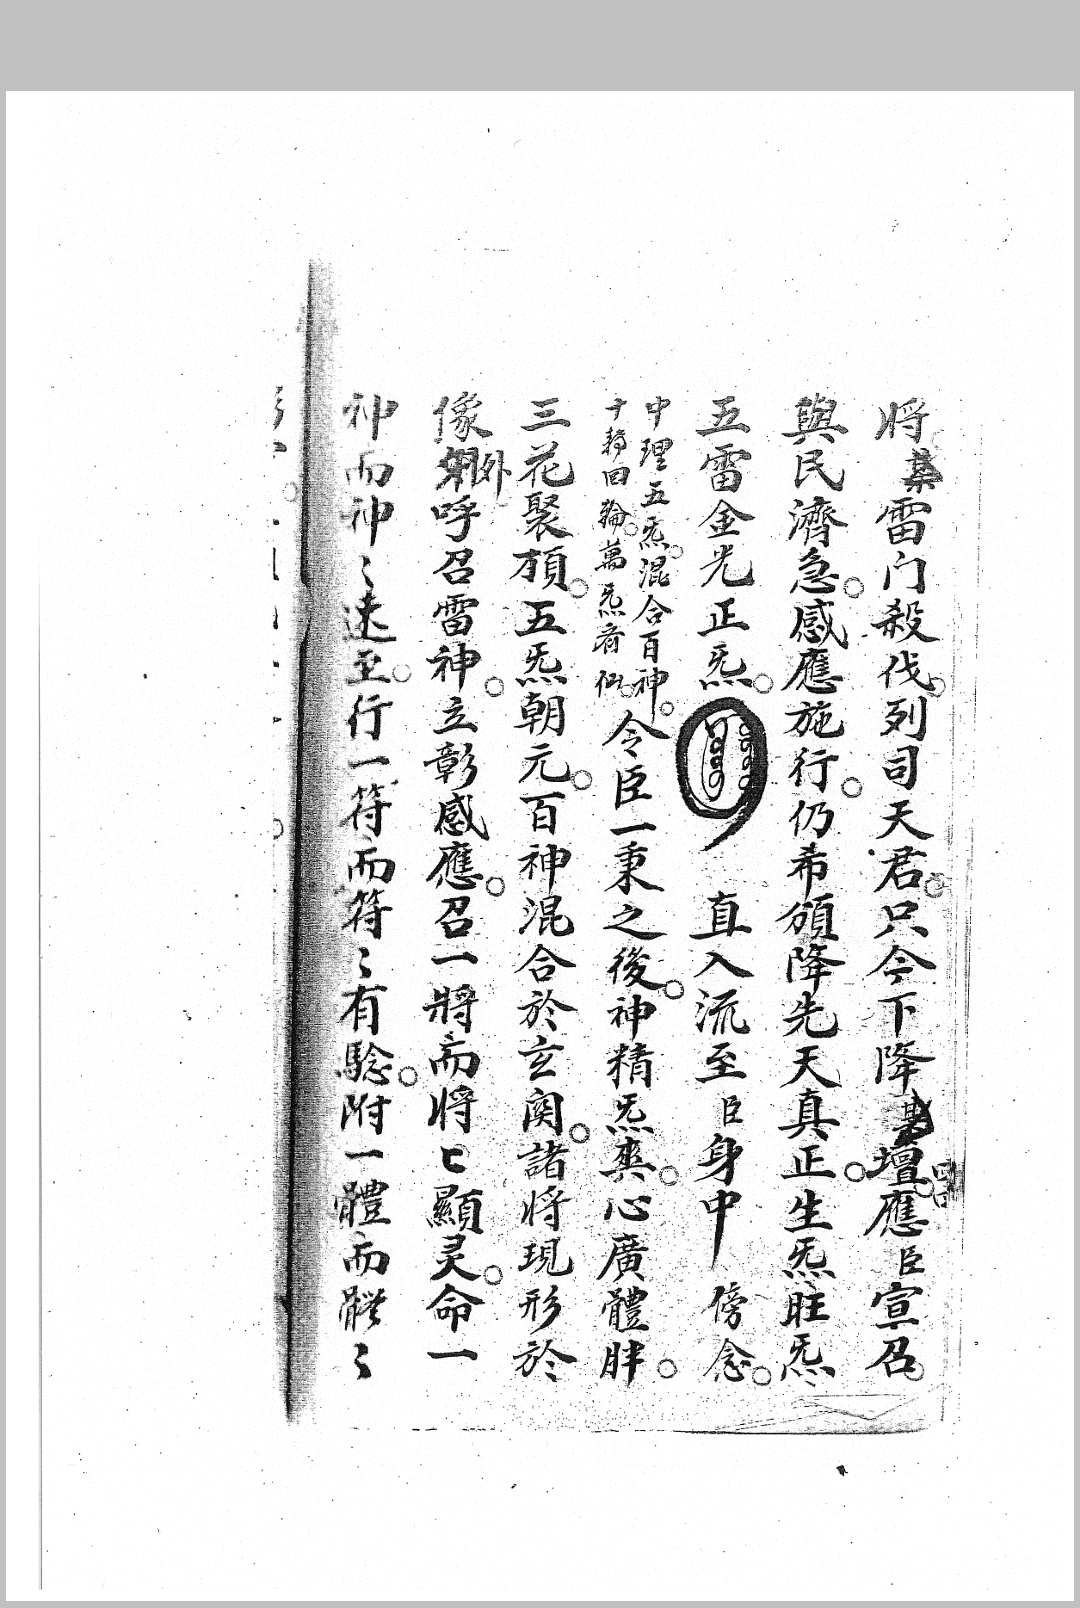 將雷门殺伐列司天君只今下降壇應臣宣召
與民濟急感應施行仍希頒降先天真正生炁旺炁
五雷金光正炁
直入流至臣身中
傍念
中理五炁混合百神
十轉回輪萬炁齊仙
令臣一秉之後神精炁爽心廣體胖
三花聚頂五炁朝元百神混合於玄関諸將現形於
像外呼召雷神立彰感應召一將而將匕顯灵命一
神而神〻速至行一符而符〻有驗附一體而體〻